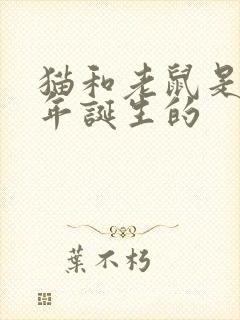 猫和老鼠是
年誕生的
葉不朽